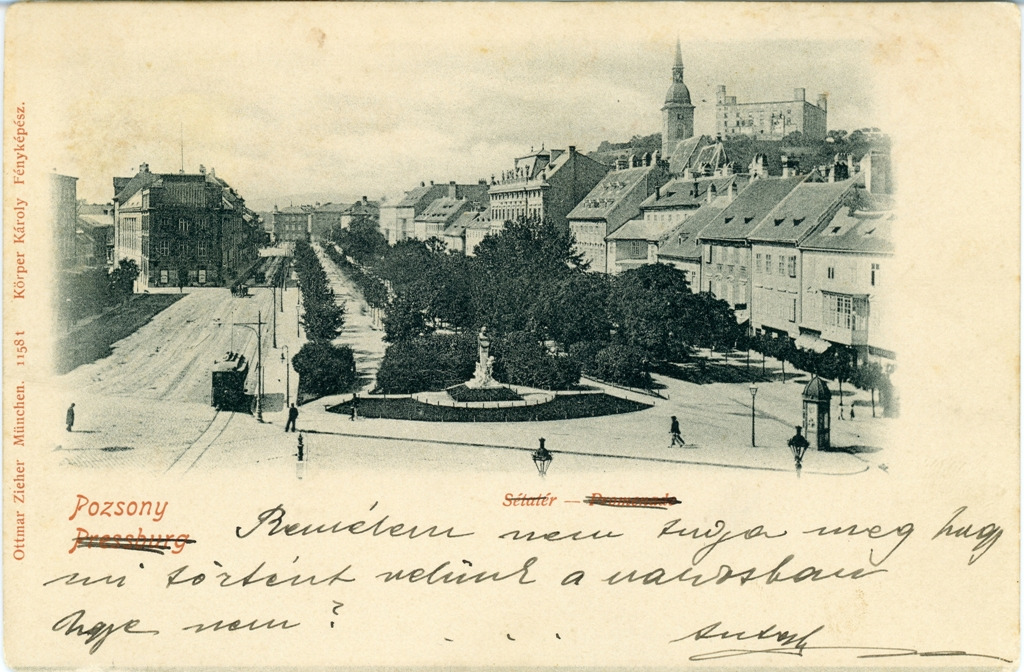 Ottmar Zieher München. 1158 t Körper Károly Fényképész.
Pozsony
Pressburg
Sétatér — Promenade
Remélem nem tudja meg hogy
mi történt velünk a városban
Ugye nem?